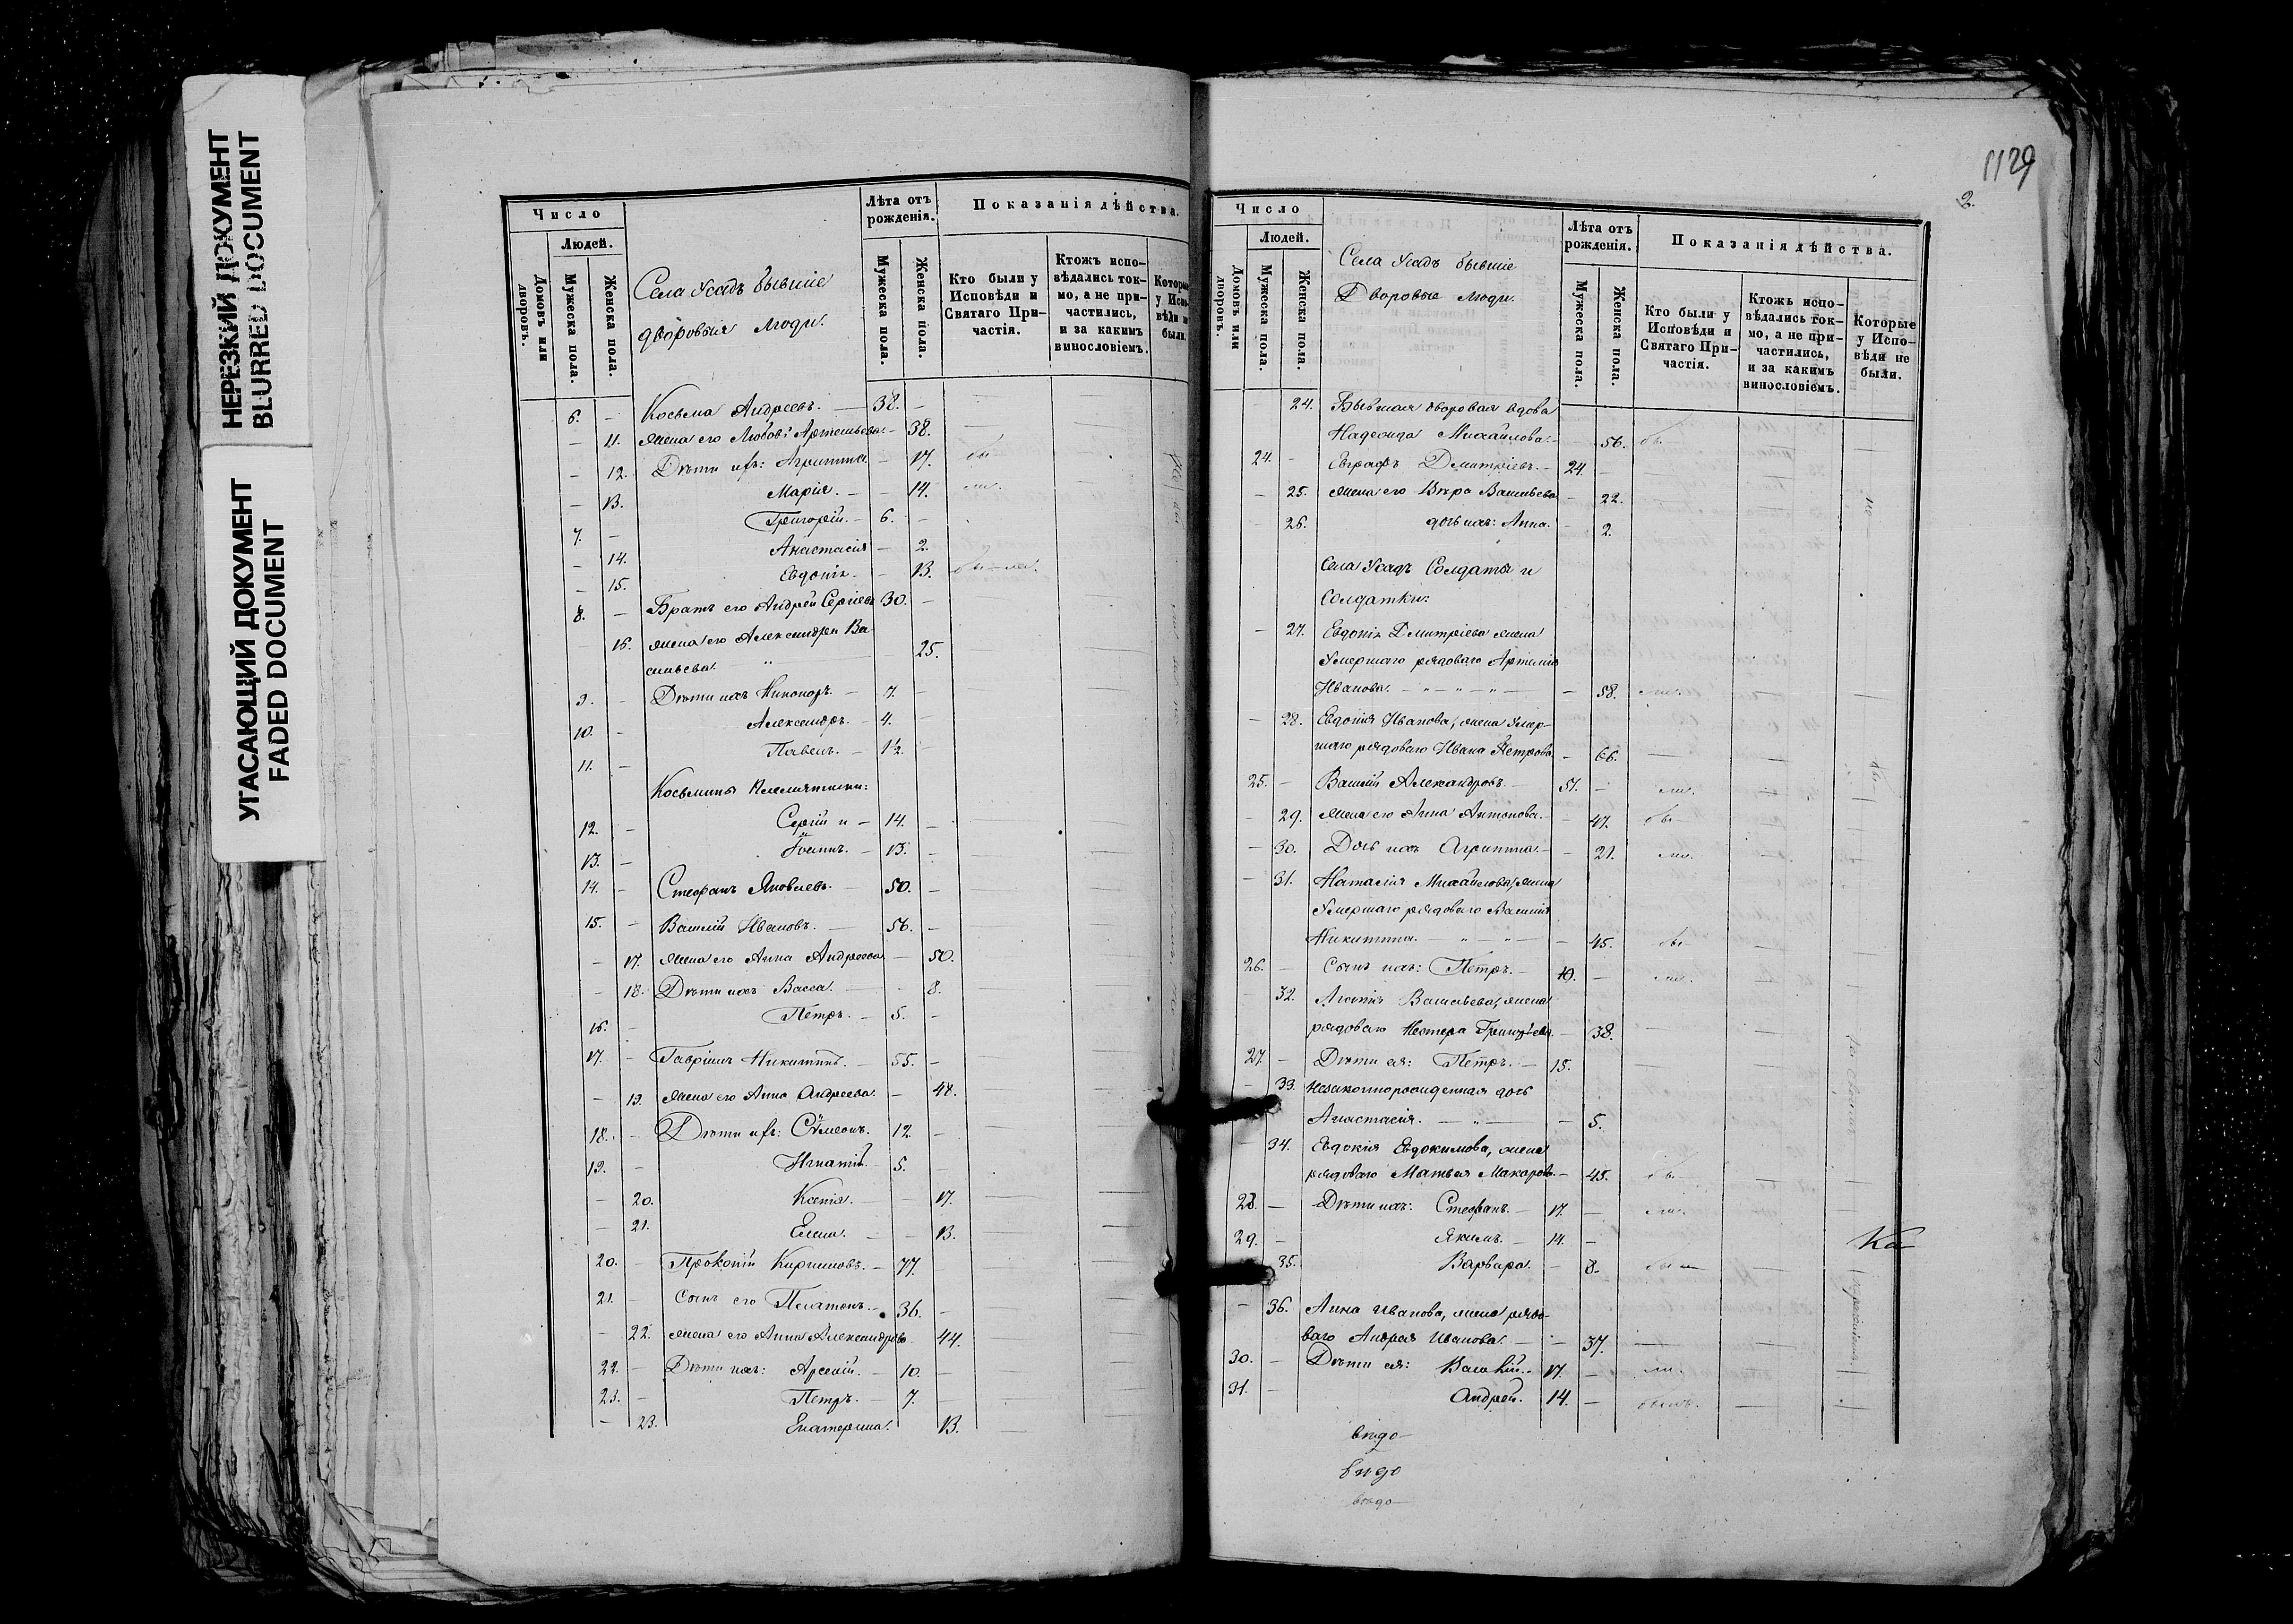 НЕРЕЗКИЙ ДОКУМЕНТ
BLURRED DOCUMENT
УГАСАЮЩИЙ ДОКУМЕНТ
FADED DOCUMENT
Число
Людей.
Домовъ или дворовъ.
Мужеска пола.
Женска пола.
Села Усадъ бывшіе
дворовыя люди.
Лѣта отъ рожденія.
Мужеска пола.
Женска пола.
Показанія дѣйства.
Кто были у Исповѣди и Святаго Причастія.
Ктожъ исповѣдались токмо, а не причастились, и за какимъ винословіемъ.
Которые у Исповѣди не были.
6. — Косьма Андреевъ. — 38. —
— 11. жена его Любовь Артемьева. — 38.
— 12. Дѣти ихъ: Агриппина. — 17. бы
— 13. Марія. — 14. ли.
7. — Григорій. — 6. —
— 14. Анастасія — 2.
— 15. Евдокія. — 13. бы-ли.
8. — Братъ его Андрей Сергіевъ 30. —
— 16. жена его Александра Ва
сильева. — 25.
9. — Дѣти ихъ Никаноръ. — 7. —
10. — Александръ. — 4. —
11. — Павелъ. — 1½. —
Косьмины племянники:
12. — Сергій и — 14. —
13. — Іоаннъ. — 13. —
14. — Стефанъ Яковлевъ. — 50. —
15. — Василій Ивановъ. — 56. —
— 17. жена его Анна Андреева. — 50.
— 18. Дѣти ихъ Васса. — 8.
16. — Петръ. — 5. —
17. — Гавріилъ Никитинъ. — 55. —
— 19. жена его Анна Андреева. — 48.
18. — Дѣти ихъ: Сѵмеонъ. 12. —
19. — Игнатій. 5. —
— 20. Ксенія. — 17.
— 21. Елена. — 13.
20. — Прокопій Кирилловъ. — 77. —
21. — Сынъ его Платонъ. — 36. —
— 22. жена его Анна Александрова 44.
22. — Дѣти ихъ: Арсеній. — 10. —
23. — Петръ. — 7. —
— 23. Екатерина. 13.
1129
2.
Число
Людей.
Домовъ или дворовъ.
Мужеска пола.
Женска пола.
Села Усадъ бывшіе
Дворовые люди.
Лѣта отъ рожденія.
Мужеска пола.
Женска пола.
Показанія дѣйства.
Кто были у Исповѣди и Святаго Причастія.
Ктожъ исповѣдались токмо, а не причастились, и за какимъ винословіемъ.
Которые у Исповѣди не были.
— 24. Бывшая дворовая вдова
Надежда Михайлова. — 56. бы
24. — Евграфъ Дмитріевъ. — 24. —
— 25. жена его Вѣра Васильева — 22.
— 26. дочь ихъ: Анна. — 2.
Села Усадъ Солдаты и
Солдатки:
— 27. Евдокія Дмитріева жена
Умершаго рядоваго Артемія
Иванова. — 58. ли.
— 28. Евдокія Иванова, жена умер-
шаго рядоваго Ивана Петрова — 66.
25. — Василій Александровъ. — 51. — ли.
— 29. жена его Анна Антонова. — 47. бы
— 30. Дочь ихъ Агриппина. — 21. ли.
— 31. Наталія Михайлова, жена
Умершаго рядоваго Василія
Никитина. — 45. бы
26. — Сынъ ихъ: Петръ. — 10. — ли.
— 32. Агаѳія Васильева, жена
рядоваго Нестера Григорьева. — 38.
27. — Дѣти ея: Петръ. — 15.
— 33. незаконнорожденная дочь
Анастасія. — 5.
— 34. Евдокія Евдокимова, жена
рядоваго Матвея Макарова — 45. бы
28. — Дѣти ихъ: Стефанъ. — 17. — ли.
29. — Якимъ. — 14. —
35. Варвара. — 8.
Ка
— 36. Анна Иванова, жена рядо-
ваго Андрея Иванова. — 37.
30. — Дѣти ея: Василій. 17. — ли.
31. — Андрей. 14. —
вѣдо
вѣдо
вѣдо